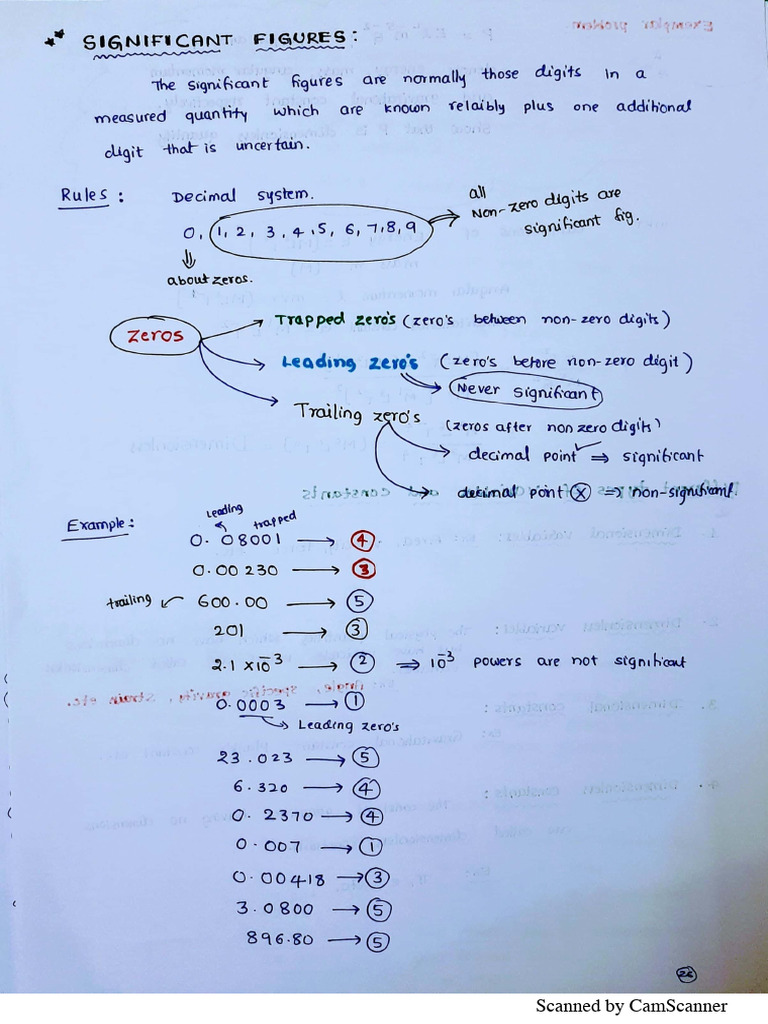 ** SIGNIFICANT FIGURES:
The significant figures are normally those digits in a
measured quantity which are known relaibly plus one additional
digit that is uncertain.
Rules: Decimal system.
0, 1, 2, 3, 4, 5, 6, 7, 8, 9
all
Non-zero digits are
significant fig.
about zeros.
zeros
Trapped zero's (zero's between non-zero digits)
Leading zero's (zero's before non-zero digit)
Never significant
Trailing zero's (zeros after non zero digits)
decimal point ✓ ⇒ significant
decimal point ⓧ ⇒ non-significant
Example:
leading trapped
0.08001 → ④
0.00230 → ③
trailing ← 600.00 → ⑤
201 → ③
2.1 × 10⁻³ → ② ⇒ 10⁻³ powers are not significant
0.0003 → ①
→ Leading zero's
23.023 → ⑤
6.320 → ④
0.2370 → ④
0.007 → ①
0.00418 → ③
3.0800 → ⑤
896.80 → ⑤
26
Scanned by CamScanner